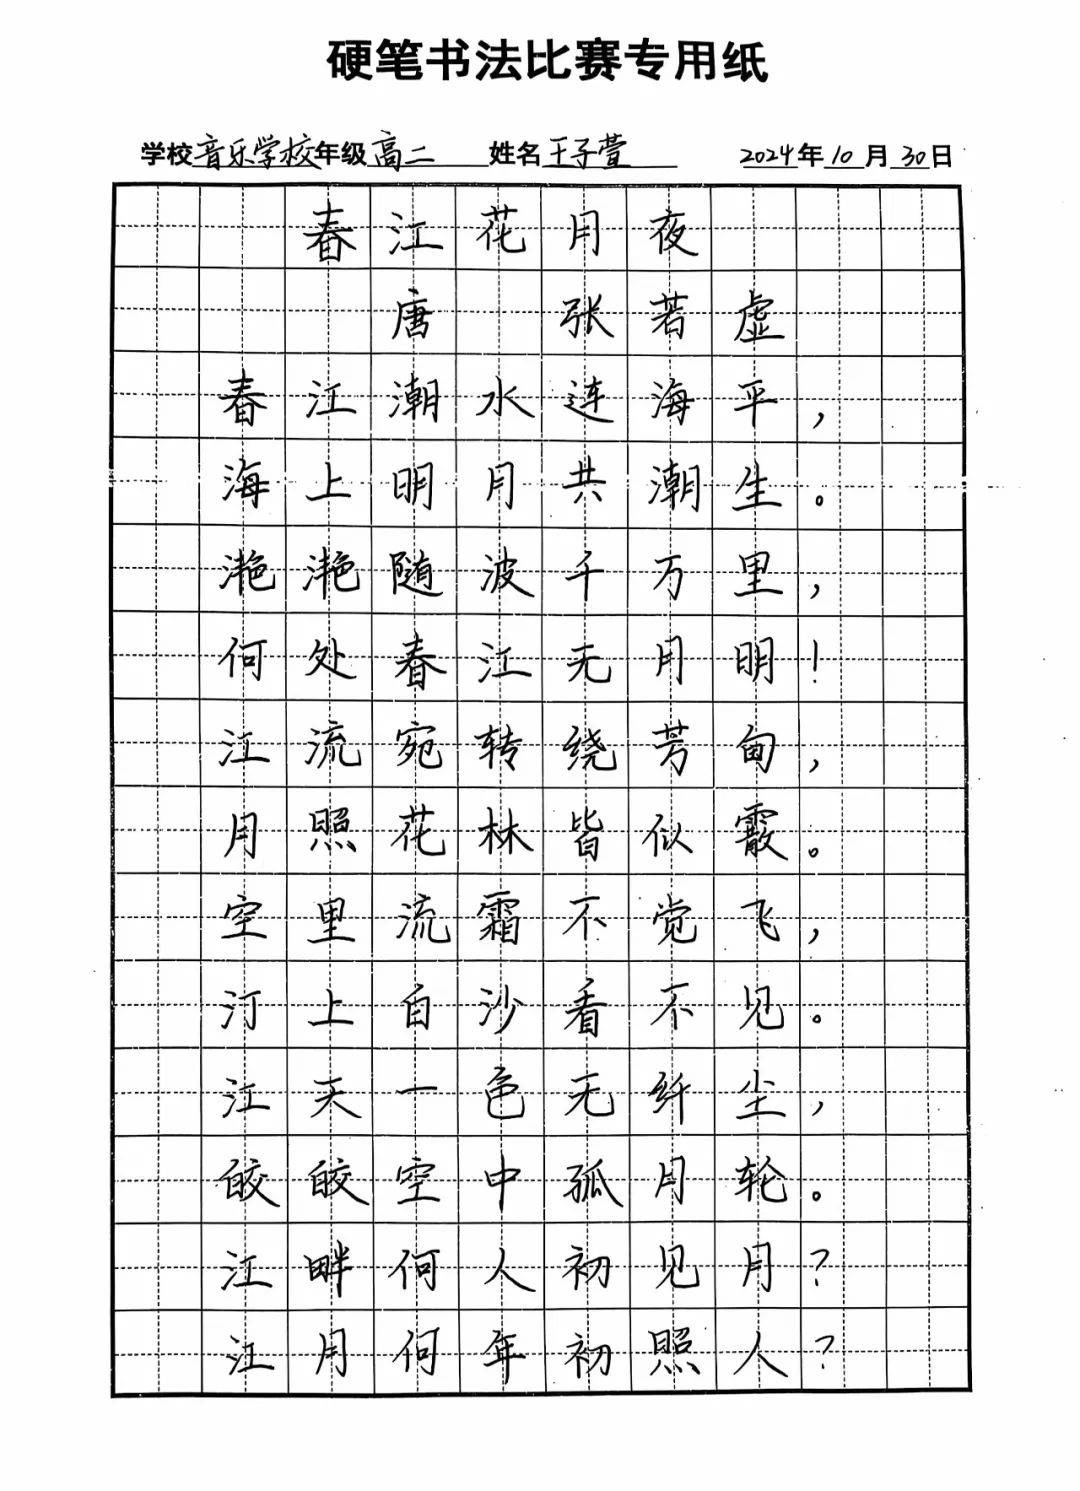 硬笔书法比赛专用纸
学校音乐学校年级高二 姓名王子萱 2024年10月30日
春江花月夜
唐 张若虚
春江潮水连海平，
海上明月共潮生。
滟滟随波千万里，
何处春江无月明！
江流宛转绕芳甸，
月照花林皆似霰。
空里流霜不觉飞，
汀上白沙看不见。
江天一色无纤尘，
皎皎空中孤月轮。
江畔何人初见月？
江月何年初照人？